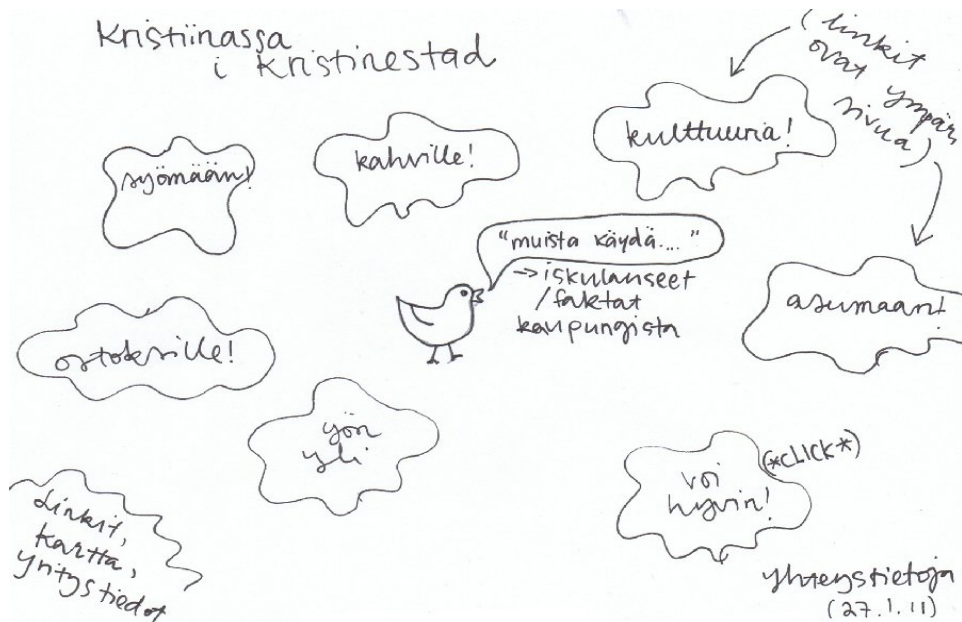 Kristiinassa
i Kristinestad
(linkit
ovat ympäri
sivua)
syömään!
kahville!
kulttuuria!
"muista käydä...."
→ iskulauseet
/faktat
kaupungista
asumaan!
ostoksille!
yön
yli
voi
hyvin!
(*CLICK*)
Linkit,
kartta,
yritystiedot
yhteystietoja
(27.1.11)